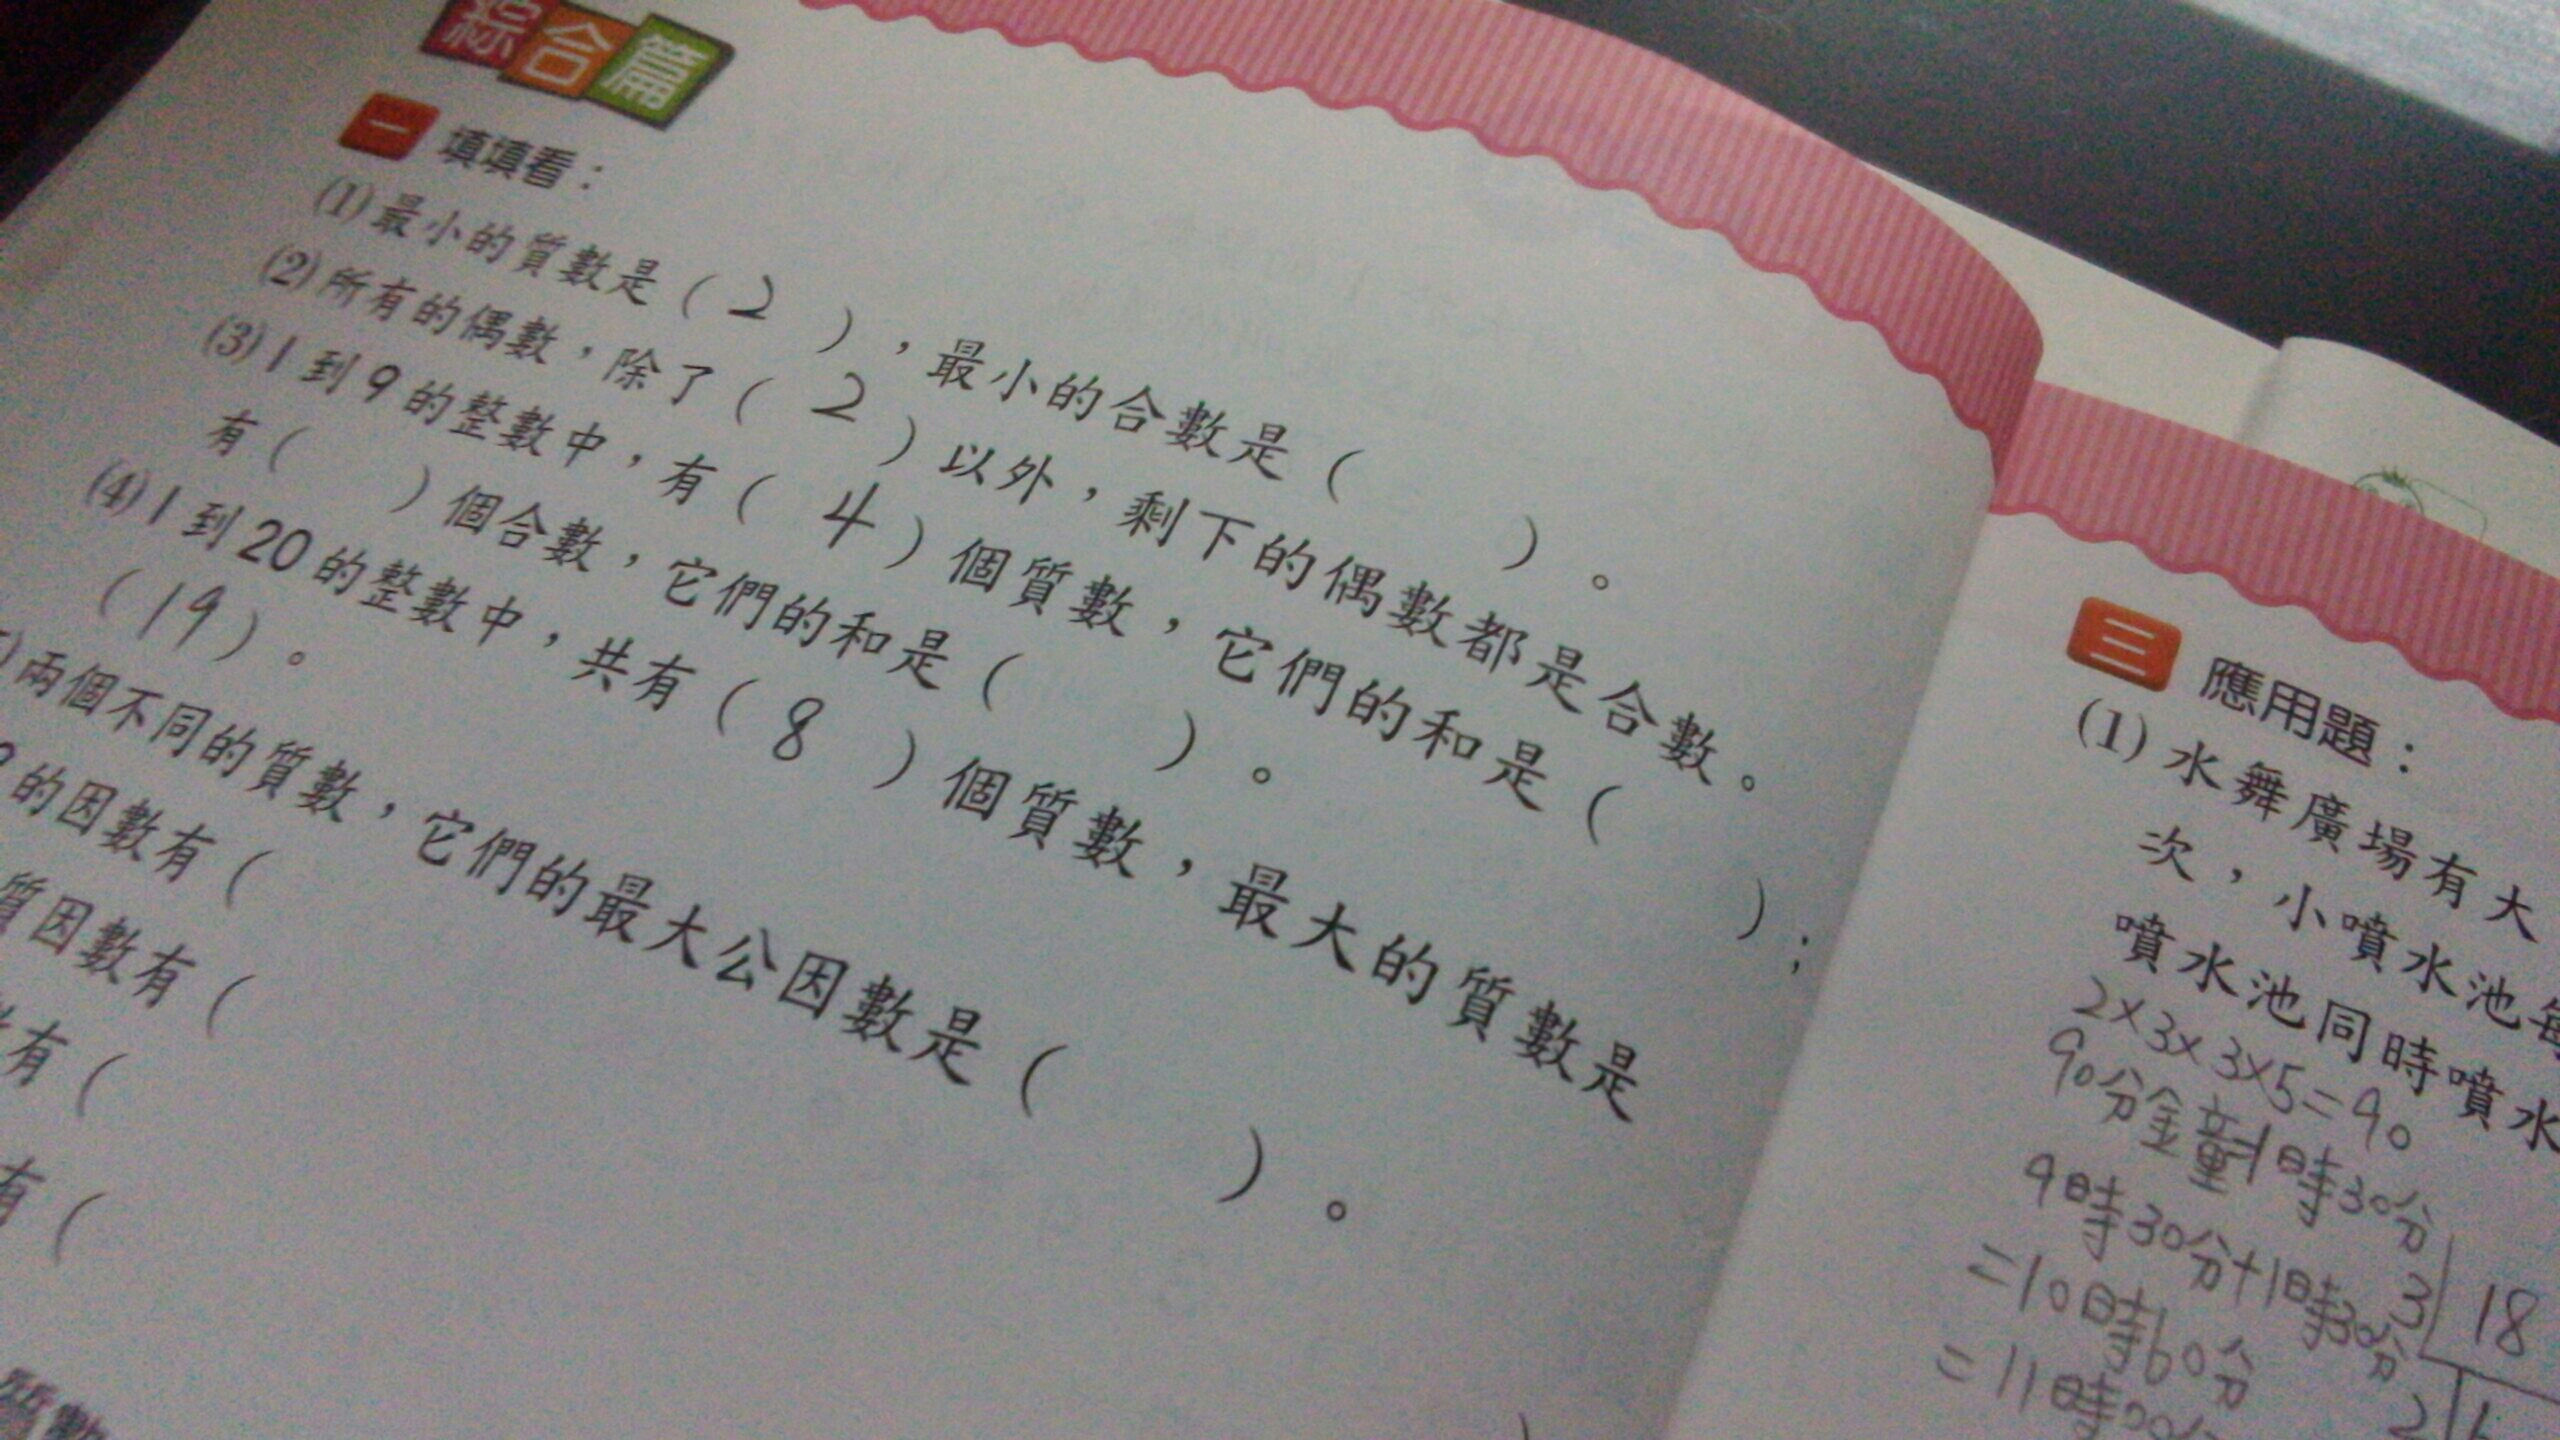 綜合篇
一 填填看：
(1)最小的質數是（2），最小的合數是（ ）。
(2)所有的偶數，除了（2）以外，剩下的偶數都是合數。
(3)1到9的整數中，有（4）個質數，它們的和是（ ）；
有（ ）個合數，它們的和是（ ）。
(4)1到20的整數中，共有（8）個質數，最大的質數是
（19）。
兩個不同的質數，它們的最大公因數是（ ）。
的因數有（
質因數有（
有（
有（
三 應用題：
(1)水舞廣場有大
次，小噴水池每
噴水池同時噴水
2×3×3×5=90
90分金童1時30分
9時30分+1時30分
=10時60分
=11時00分
3 18
2 6